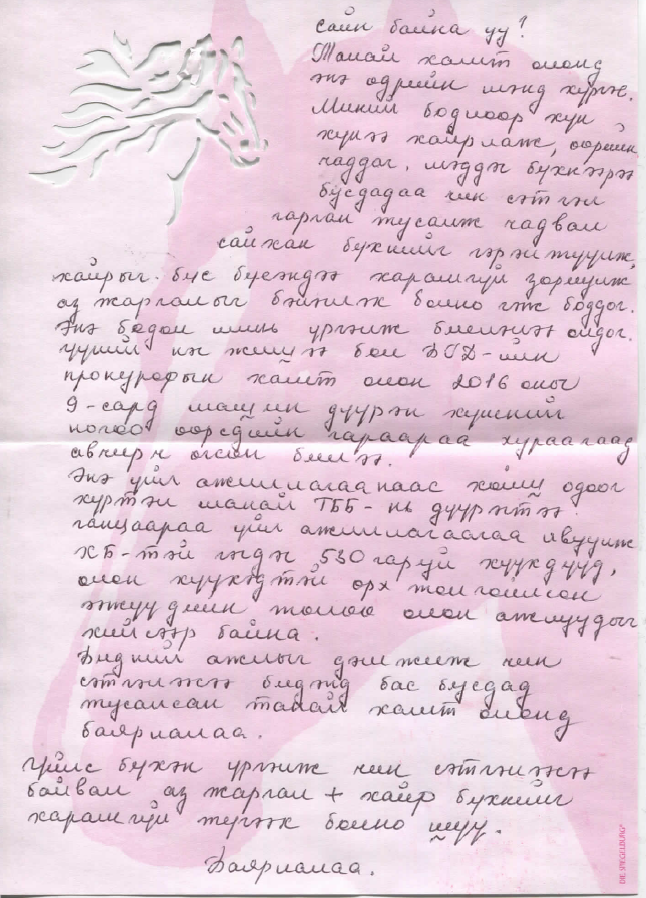 сайн байна уу?
Танай хамт олонд
энэ өдрийн мэнд хүргэе.
Миний бодлоор хүн
хүнээ хайрлаж, өөрийн
чаддаг, мэддэг бүхнээрээ
бусдадаа чин сэтгэл
гарган тусалж чадвал
сайхан бүхнийг гэрэлтүүлж,
хайрыг бүс бүсэндээ харамгүй зориулж
аз жаргалыг бэлэглэж болно гэж боддог.
Энэ бодол минь үргэлж биелэлээ олдог.
Үүний нэг жишээ бол БГД-ийн
прокурорын хамт олон 2016 оны
9-сард машин дүүрэн хүнсний
ногоо өөрсдийн гараараа хураагаад
авчирч өгсөн билээ.
Энэ үйл ажиллагаанаас хойш одоог
хүртэл манай ТББ-нь дүүрэгтээ
ганцаараа үйл ажиллагаагаа явуулж
ХБ-тэй гэгдэх 530 гаруй хүүхдүүд,
олон хүүхэдтэй өрх толгойлсон
ээжүүдийн төлөө олон ажлуудыг
хийсээр байна.
Бидний ажлыг дэмжиж чин
сэтгэлээсээ бидэнд бас бусдад
тусалсан танай хамт олонд
баярлалаа.
Үйлс бүхэн үргэлж чин сэтгэлээсээ
байвал аз жаргал + хайр бүхнийг
харамгүй түгээж болно шүү.
Баярлалаа.
DIE SPIEGELBURG®